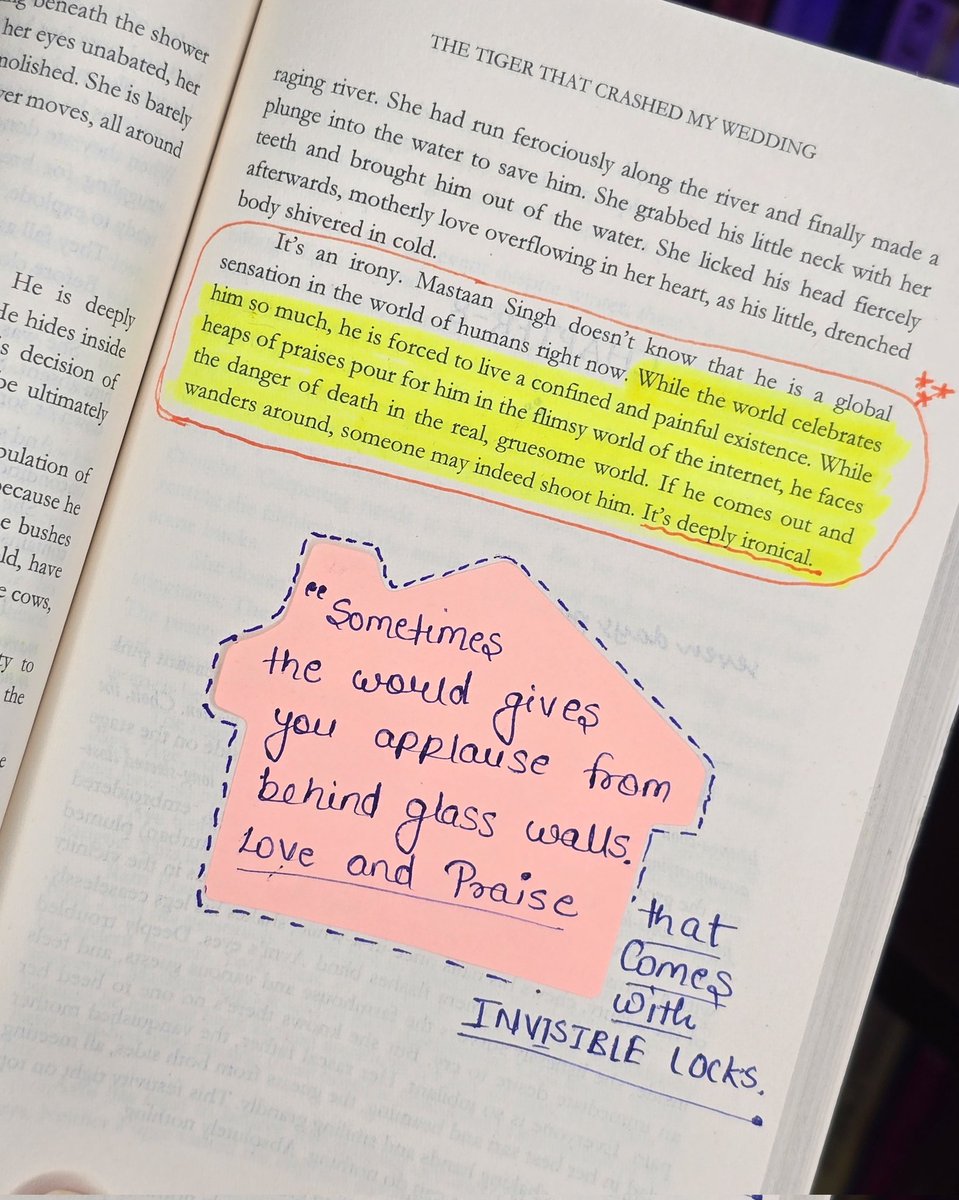 ng beneath the shower
her eyes unabated, her
molished. She is barely
ver moves, all around
He is deeply
He hides inside
s decision of
be ultimately
pulation of
because he
e bushes
ld, have
e cows,
ty to
the
THE TIGER THAT CRASHED MY WEDDING
raging river. She had run ferociously along the river and finally made a
plunge into the water to save him. She grabbed his little neck with her
teeth and brought him out of the water. She licked his head fiercely
afterwards, motherly love overflowing in her heart, as his little, drenched
body shivered in cold.
It's an irony. Mastaan Singh doesn't know that he is a global
sensation in the world of humans right now. While the world celebrates
him so much, he is forced to live a confined and painful existence. While
heaps of praises pour for him in the flimsy world of the internet, he faces
the danger of death in the real, gruesome world. If he comes out and
wanders around, someone may indeed shoot him. It's deeply ironical.
"Sometimes
the would gives
you applause from
behind glass walls.
Love and Praise
that
Comes
with
INVISIBLE LOCKS.